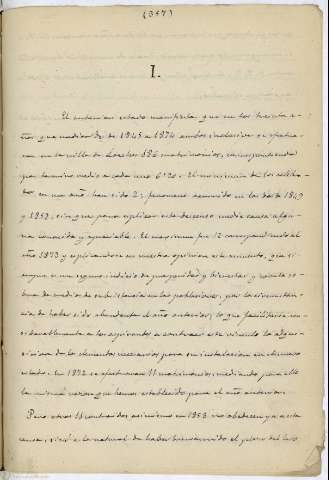 (357)
I.
El anterior estado manifiesta que en los treinta a-
ños que median de 1845 a 1874 ambos inclusive se efectua-
ron en la villa de Loeches 186 matrimonios, correspondiendo
por término medio a cada uno 6'20. El mínimum de los celebra-
dos en un año han sido 2; fenómeno ocurrido en los de 1847
y 1859, sin que para explicar este descenso medie causa algu-
na conocida y apreciable. El máximum fue 12 correspondiendo al
año 1873 y explicándose en nuestra opinión este aumento, que si-
empre es un seguro indicio de prosperidad y bienestar y
de medios de subsistencia en las poblaciones, por la circunstan-
cia de haber sido abundante el año anterior, lo que facilitaría in-
dudablemente a los aspirantes a contraer este vínculo la adqui-
sición de los elementos necesarios para su instalación en el nuevo
estado. En 1872 se efectuaron 11 matrimonios, mediando para ello
la misma razón que hemos establecido para el año anterior.
Pero otros 11 contraidos asimismo en 1853 no obedecen ya a esta
causa, sinó a la natural de haber transcurrido el plazo del luto